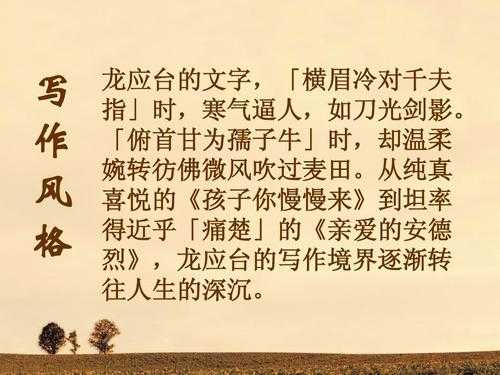 写作风格
龙应台的文字，「横眉冷对千夫
指」时，寒气逼人，如刀光剑影。
「俯首甘为孺子牛」时，却温柔
婉转彷佛微风吹过麦田。从纯真
喜悦的《孩子你慢慢来》到坦率
得近乎「痛楚」的《亲爱的安德
烈》，龙应台的写作境界逐渐转
往人生的深沉。